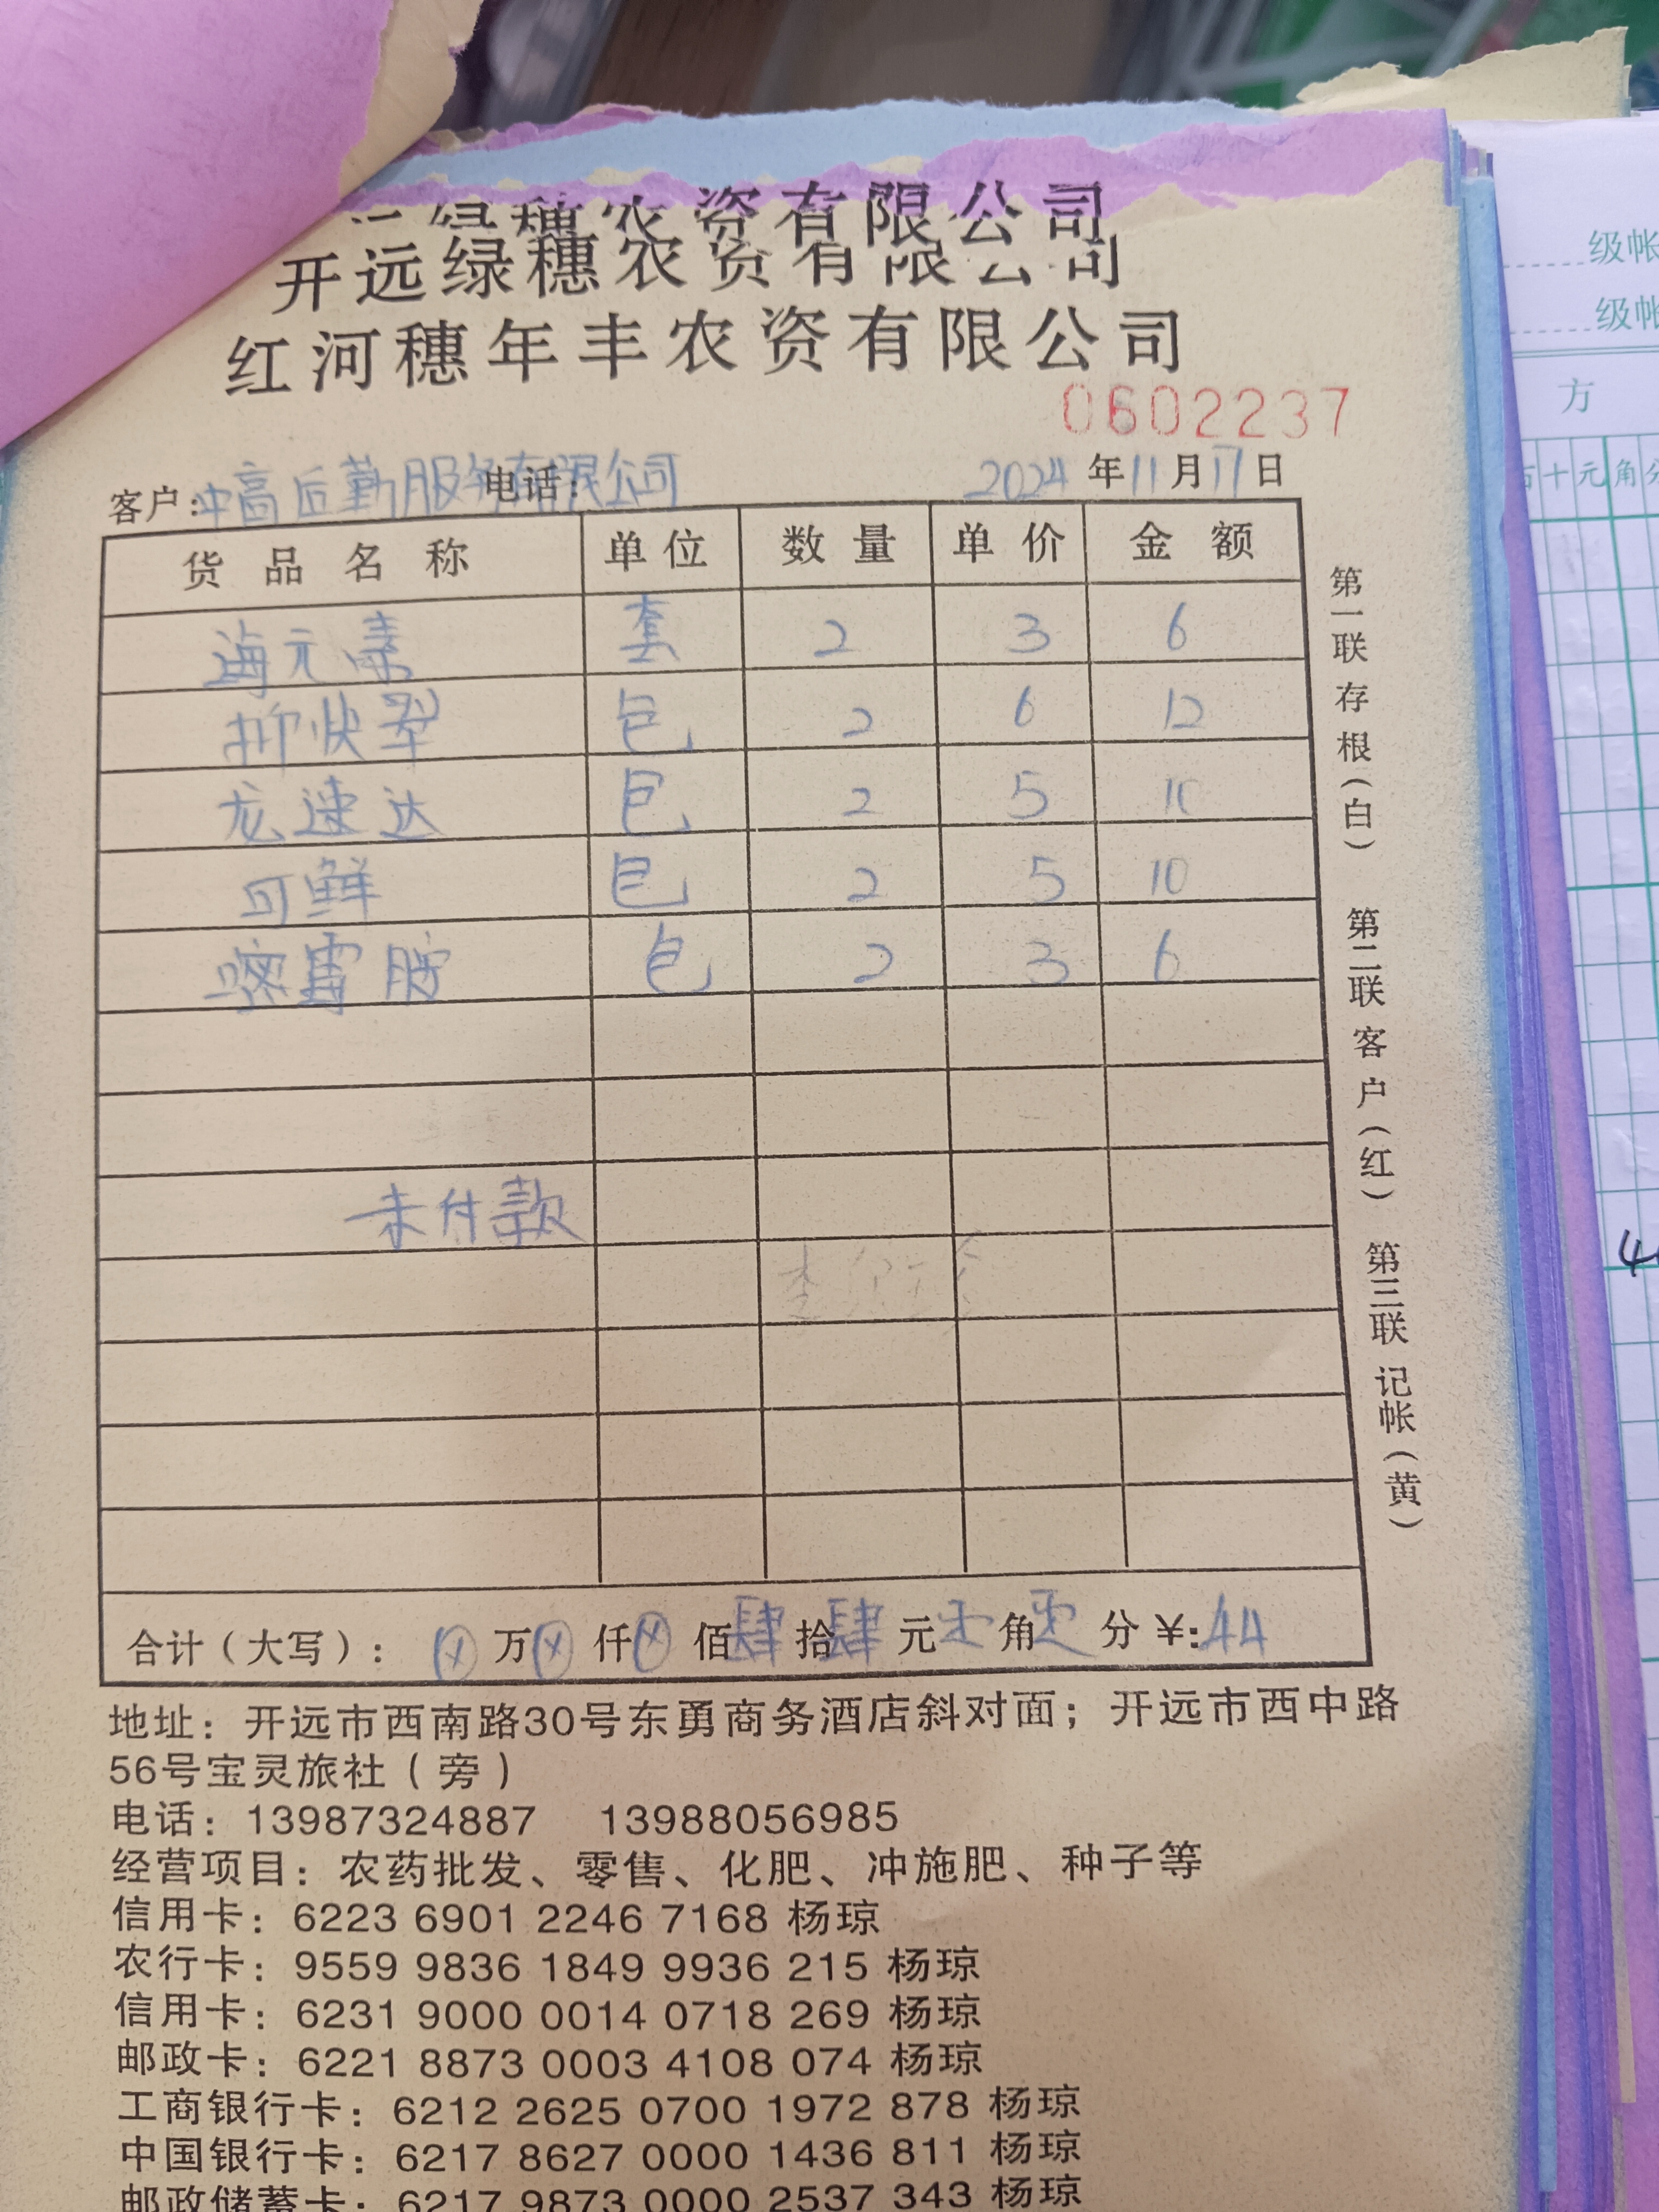 绿穗农资有限公司
开远绿穗农资有限公司
红河穗年丰农资有限公司
0602237
客户：冲高后勤服务有限公司 电话： 2024年11月17日
货品名称 单位 数量 单价 金额
海元素 套 2 3 6
抑快净 包 2 6 12
龙速达 包 2 5 10
可鲜 包 2 5 10
嘧霉胺 包 2 3 6
未付款
李
合计（大写）：⊗万⊗仟⊗佰肆拾肆元零角零分¥:44
第一联存根（白） 第二联客户（红） 第三联记帐（黄）
地址：开远市西南路30号东勇商务酒店斜对面；开远市西中路
56号宝灵旅社（旁）
电话：13987324887 13988056985
经营项目：农药批发、零售、化肥、冲施肥、种子等
信用卡：6223 6901 2246 7168 杨琼
农行卡：9559 9836 1849 9936 215 杨琼
信用卡：6231 9000 0014 0718 269 杨琼
邮政卡：6221 8873 0003 4108 074 杨琼
工商银行卡：6212 2625 0700 1972 878 杨琼
中国银行卡：6217 8627 0000 1436 811 杨琼
邮政储蓄卡：6217 9873 0000 2537 343 杨琼
级帐
级帐
方
百十元角分